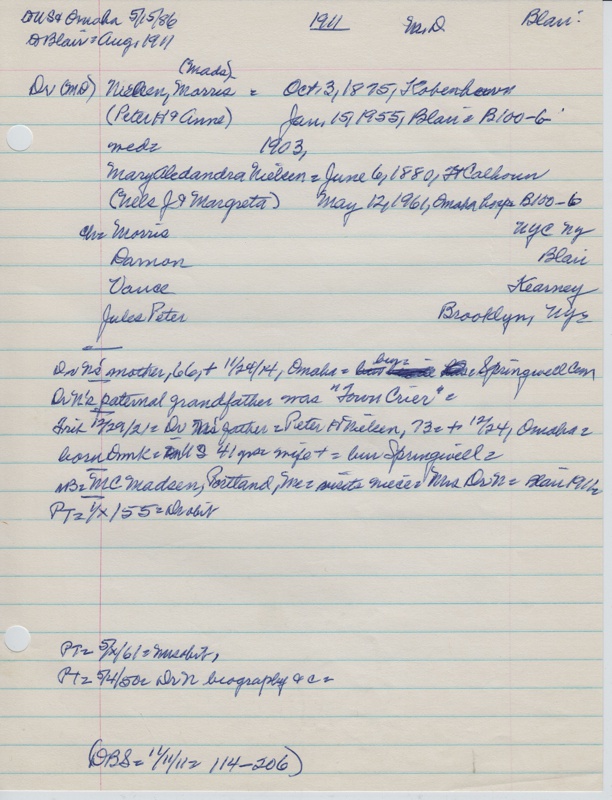 DUS & Omaha 5/15/86 1911 M.D. Blair:
D Blair = Aug, 1911
(Mads)
Dr (MD) Nielsen, Morris = Oct. 3, 1875, Kobenhavn
(Peter H & Anne) Jan, 15, 1955, Blair = B100-6
med = 1903,
Mary Aledandra Nielsen = June 6, 1880, Ft Calhoun
(Nels J & Margreta) May 12, 1961, Omaha hosp B100-6
ch = Morris NYC NY
Damon Blair
Vance Kearney
Jules Peter Brooklyn, NY =
Dr N's mother, 66, + 11/24/14, Omaha = bur = Springwell Cem
Dr N's paternal grandfather was "Town Crier" =
12/29/21 = Dr N's father = Peter H Nielsen, 73 = + 12/24, Omaha =
born Dmk = US 41 yrs = wife + = bur Springwell =
NB = MC Madsen, Portland, Me = visits niece = Mrs Dr N = Blair 1911 =
PT = 1/X/55 = Dr obit
PT = 5/X/61 = Mrs obit,
PT = 5/4/50 = Dr N biography & c =
(DBS = 11/11/11 = 114-206)